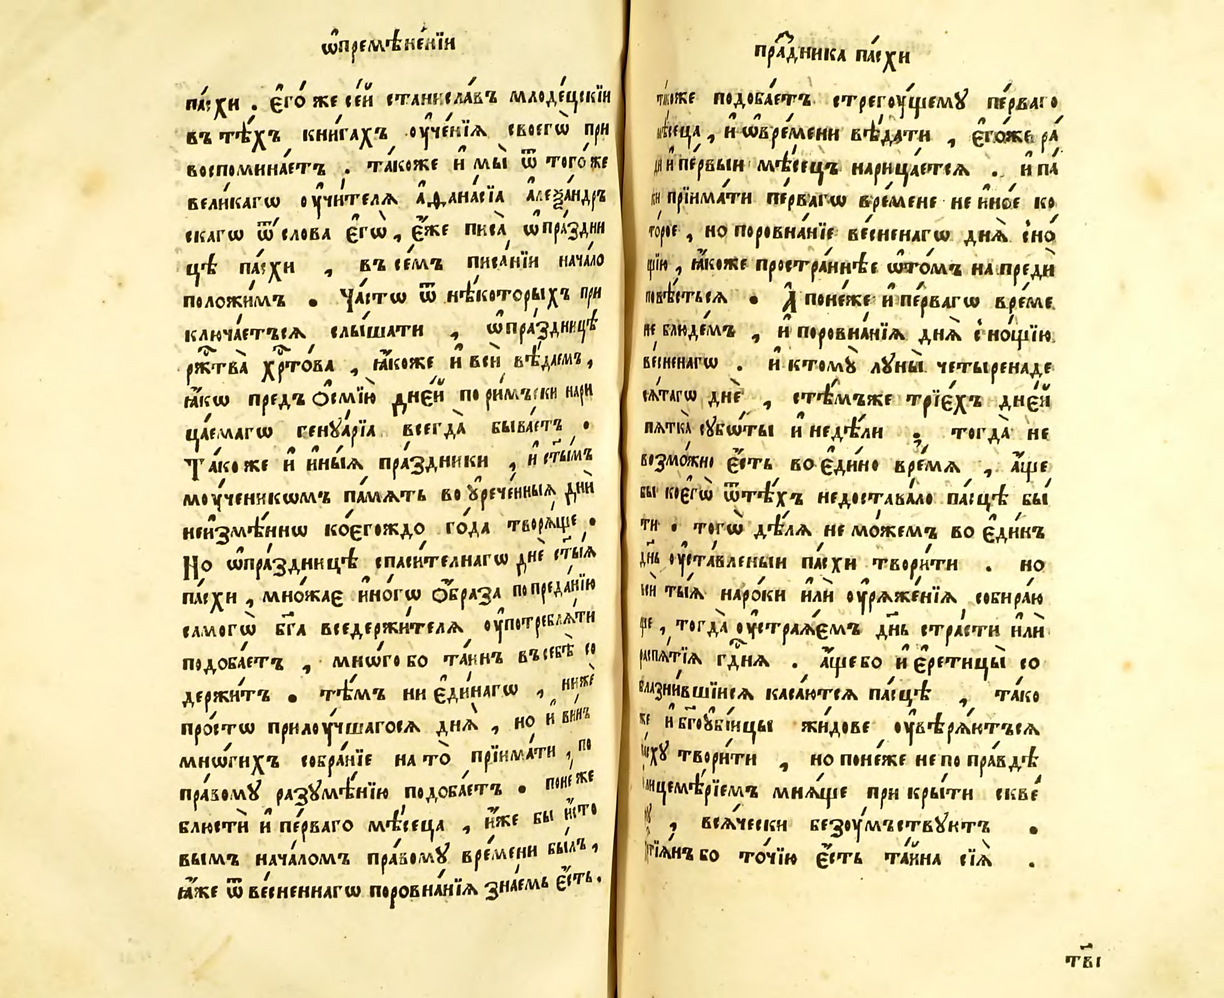 ѡ҆премѣне́нїи
па́схи . є҆го́ же се́й станисла́въ младе́цскїи
въ тѣ́хъ кни́гахъ оу҆че́нїѧ своегѡ̀ при
воспомина́етъ . та́коже и҆ мы̀ ѿ того́ же
вели́кагѡ оу҆чи́телѧ а҆ѳана́сїа а҆леѯа́ндръ
скагѡ ѿ сло́ва є҆гѡ̀ , є҆́же писа̀ ѡ҆ пра́здни
цѣ па́схи , въ се́мъ писа́нїи нача́ло
положи́мъ . Ча́стѡ ѿ нѣ́которыхъ при
ключа́етъсѧ слы́шати , ѡ҆пра́здницѣ
рж҃тва̀ хр҃то́ва , ꙗ҆́коже и҆ всѝ вѣ́даемъ ,
ꙗ҆́кѡ предъ ѻ҆смїю̀ дне́й по ри́мъски нари
ца́емагѡ генꙋа́рїа всегда̀ быва́етъ .
Та́ко же и҆ и҆ны́ѧ пра́здники , и҆ ст҃ы́мъ
мꙋ́ченикѡмъ па́мѧть во ᲂу҆рече́нныѧ дни̑
неизмѣ́ннѡ коегѡ́ждо го́да творѧ́ще .
Но ѡ҆пра́здницѣ спаси́телнагѡ днѐ ст҃ы́ѧ
па́схи , мно́жае и҆но́гѡ ѻ҆́браза по преда́нїю
самогѡ̀ бг҃а вседержи́телѧ оу҆потреблѧ́ти
подоба́етъ , мно́го бо та́инъ въ себѣ̀ со
держи́тъ . тѣ́мъ ни є҆ди́нагѡ , нижѐ
про́стѡ прилоу́чшагосѧ днѧ̀ , но и҆ ви́нъ
мно́гихъ собра́нїе на то̀ прїима́ти , по
пра́вомꙋ разꙋмѣ́нїю подоба́етъ . поне́же
блюстѝ и҆ пе́рваго мѣ́сеца , и҆́же бы и҆́сто
вымъ нача́ломъ пра́вомꙋ вре́мени бы́лъ ,
ꙗ҆́же ѿ весненнагѡ поровна́нїѧ зна́емь є҆́сть .
пра́здника па́схи
та́коже подоба́етъ стрегоу́щемꙋ пе́рваго
мѣ́сеца , и҆ ѡ҆вре́мени вѣ́дати , є҆го́же ра́
ди и҆ пе́рвыи мѣ́сецъ нарица́етсѧ . и҆ па́
ки прїима́ти пе́рвагѡ вре́мене не и҆но́е ко
то́рое , но поровна́нїе ве́сненагѡ днѧ̀ сно
щїю , ꙗ҆́коже простра́ннѣе ѡ҆то́мъ на предѝ
повѣ́стьсѧ . А҆ поне́же и҆ пе́рвагѡ вре́ме
не блюде́мъ , и҆ поровна́нїѧ днѧ̀ с но́щїю
ве́сненагѡ . и҆ ктомꙋ̀ лꙋны̀ четыренаде
сѧ́тагѡ днѐ , стѣ́мъже трїе́хъ дне́й
пѧтка̀ сꙋбѡ́ты и҆ неде́ли . тогда̀ не
возмо́жно є҆́сть во є҆ди́но вре́мѧ , а҆́ще
бы коегѡ̀ ѿ тѣ́хъ недостава́ло па́сцѣ бы́
ти . тогѡ̀ дѣ́лѧ не мо́жемъ во є҆ди́нъ
дн҃ь оу҆ста́вленыи па́схи твори́ти . но
сїи ты́ѧ наро́ки и҆лѝ оу҆рѧже́нїѧ собира́ю
ще , тогда̀ оу҆страѧ́емъ дн҃ь стра́сти и҆лѝ
распѧ́тїѧ гд҃нѧ . а҆ще бо и҆ є҆ретицы̀ со
блазни́вшїисѧ каса́ютсѧ па́сцѣ , та́ко
же и҆ бг҃оубі́ицы жи́дове оу҆вѣрѧ́ютъсѧ
па́схꙋ твори́ти , но поне́же не по пра́вдѣ
лицемѣ́рїемъ мнѧ́ще прикры́ти скве́
, всѧ́чески безоу́мъствꙋютъ .
бо то́чїю є҆́сть та́йна сїѧ̀ .
тв҃і